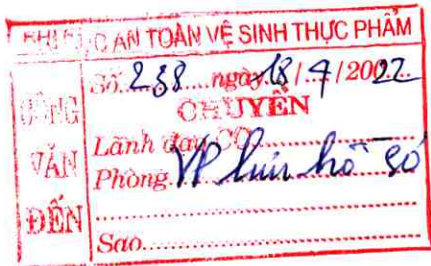 CỤC AN TOÀN VỆ SINH THỰC PHẨM
CÔNG VĂN ĐẾN
Số 238 ngày 18/7/2022
CHUYỂN
Lãnh đạo
Phòng VP lưu hồ sơ
Sao